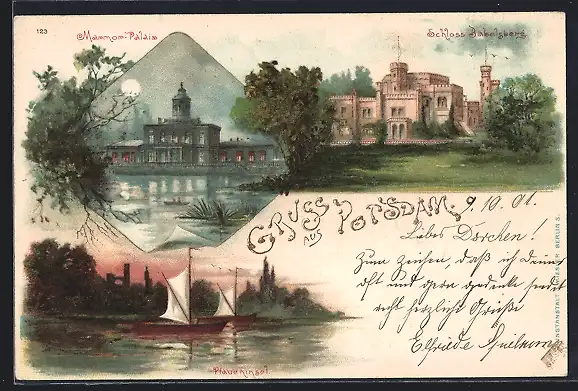 123
Marmor-Palais
Schloss Babelsberg
GRUSS AUS POTSDAM.
9.10.01.
Liebes Dorchen!
Zum Zeichen, daß ich Deiner
oft und gern gedenke sendet
recht herzliche Grüße
Elfriede
Pfaueninsel
KUNSTANSTALT J. MIESLER, BERLIN S.